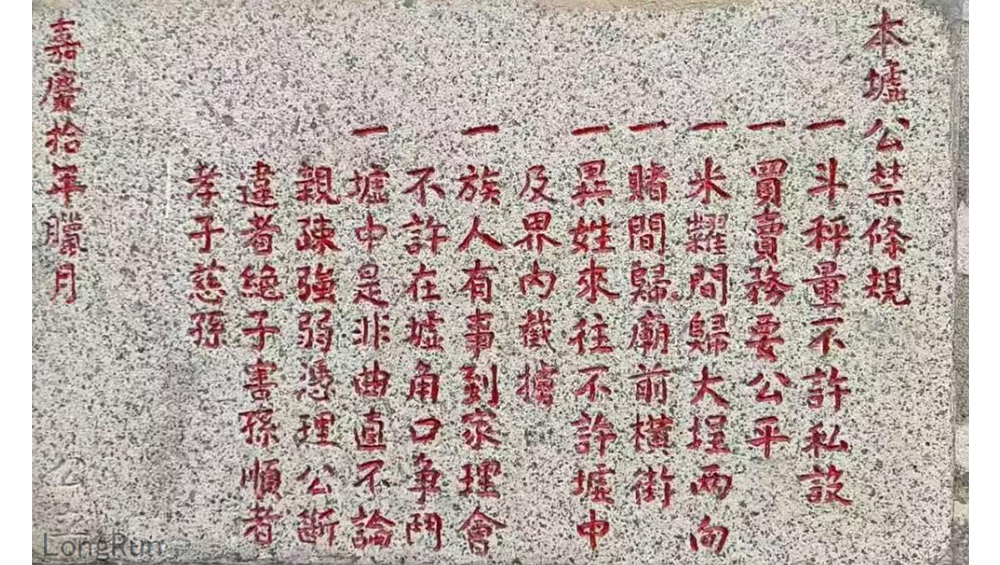 本墟公禁條規
一斗秤量不許私設
一買賣務要公平
一米糶間歸大埕両向
一賭間歸廟前橫街
一異姓來往不許墟中
及界內截擄
一族人有事到家理會
不許在墟角口争鬥
一墟中是非曲直不論
親疎強弱憑理公斷
違者絶子害孫順者
孝子慈孫
嘉慶拾年臘月
公
LongRun